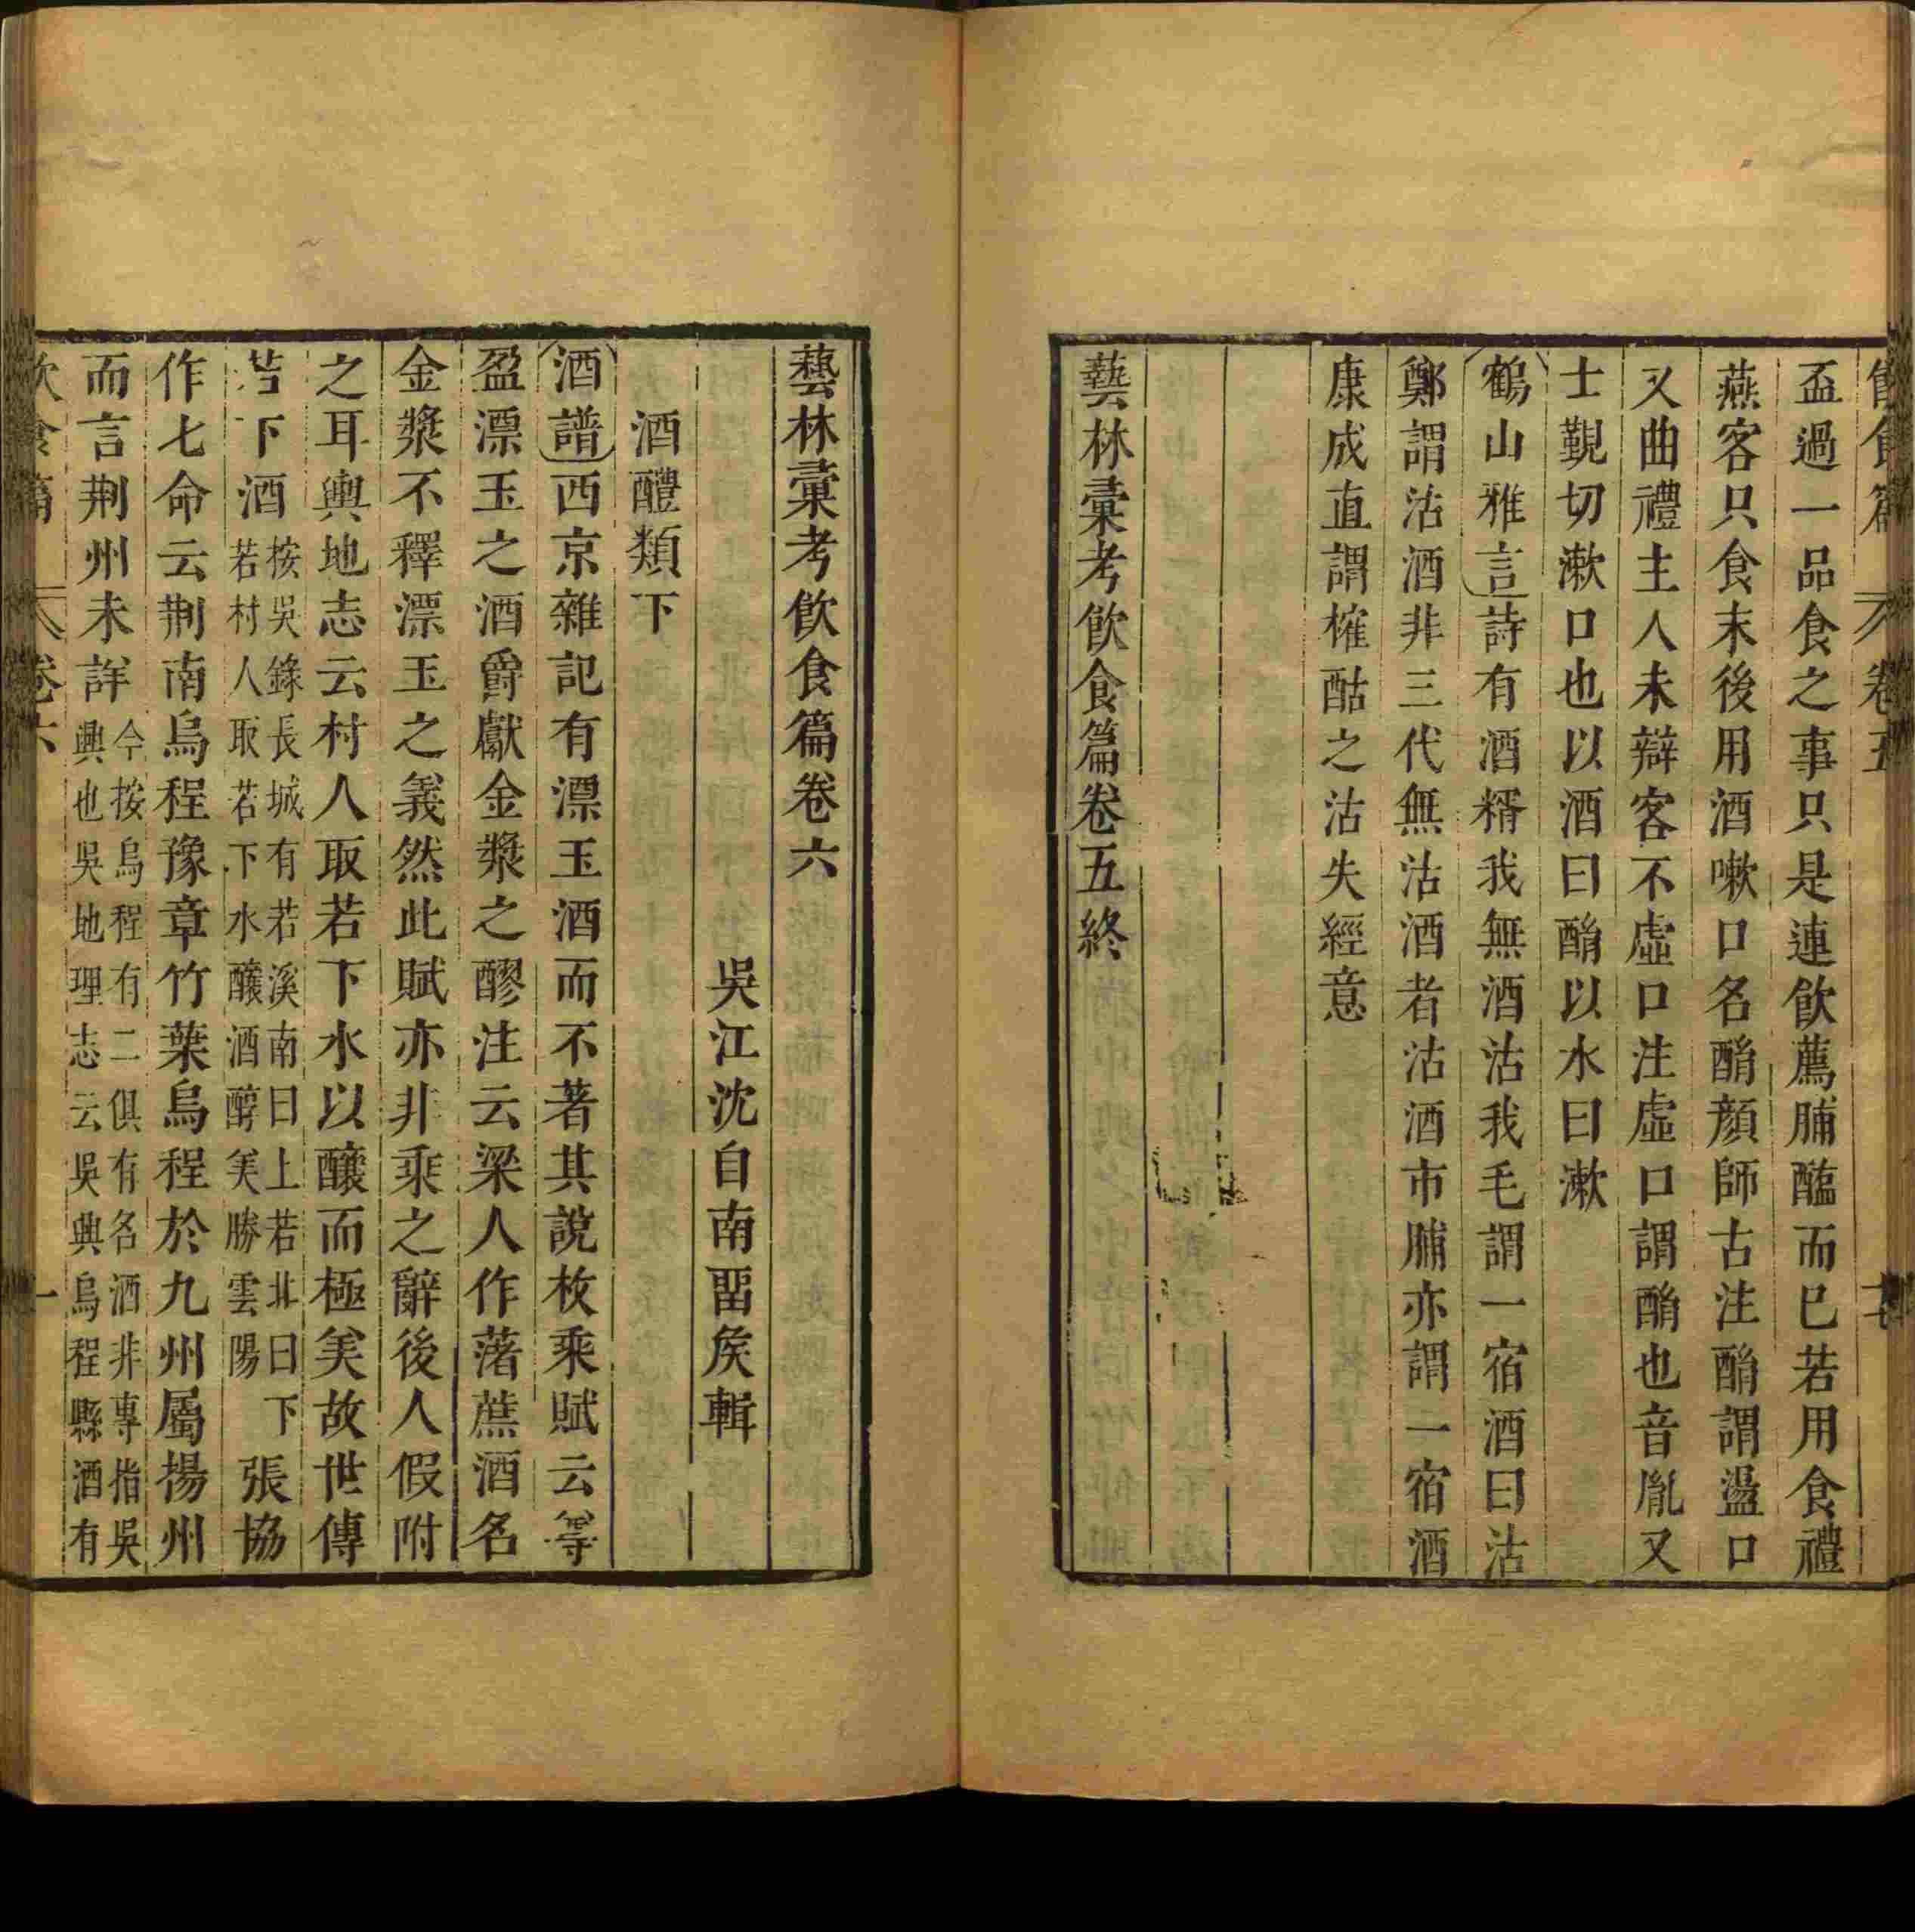 飲食篇 卷五 十七
盃過一品食之事只是連飲薦脯醢而已若用食禮
燕客只食末後用酒嗽口名酳顏師古注酳謂盪口
又曲禮主人未辯客不虛口注虛口謂酳也音胤又
士覲切漱口也以酒曰酳以水曰漱
鶴山雅言詩有酒糈我無酒沽我毛謂一宿酒曰沽
鄭謂沽酒非三代無沽酒者沽酒市脯亦謂一宿酒
康成直謂榷酤之沽失經意
藝林彙考飲食篇卷五終
藝林彙考飲食篇卷六
吳江沈自南畱矦輯
酒醴類下
酒譜西京雜記有漂玉酒而不著其說枚乘賦云等
盈漂玉之酒爵獻金漿之醪注云梁人作藷蔗酒名
金漿不釋漂玉之義然此賦亦非乘之辭後人假附
之耳輿地志云村人取若下水以釀而極美故世傳
若下酒按吳錄長城有若溪南曰上若北曰下若村人取若下水釀酒醇美勝雲陽張協
作七命云荆南烏程豫章竹葉烏程於九州屬揚州
而言荆州未詳今按烏程有二俱有名酒非專指吳興也吳地理志云吳興烏程縣酒有
飲食篇 卷六 一